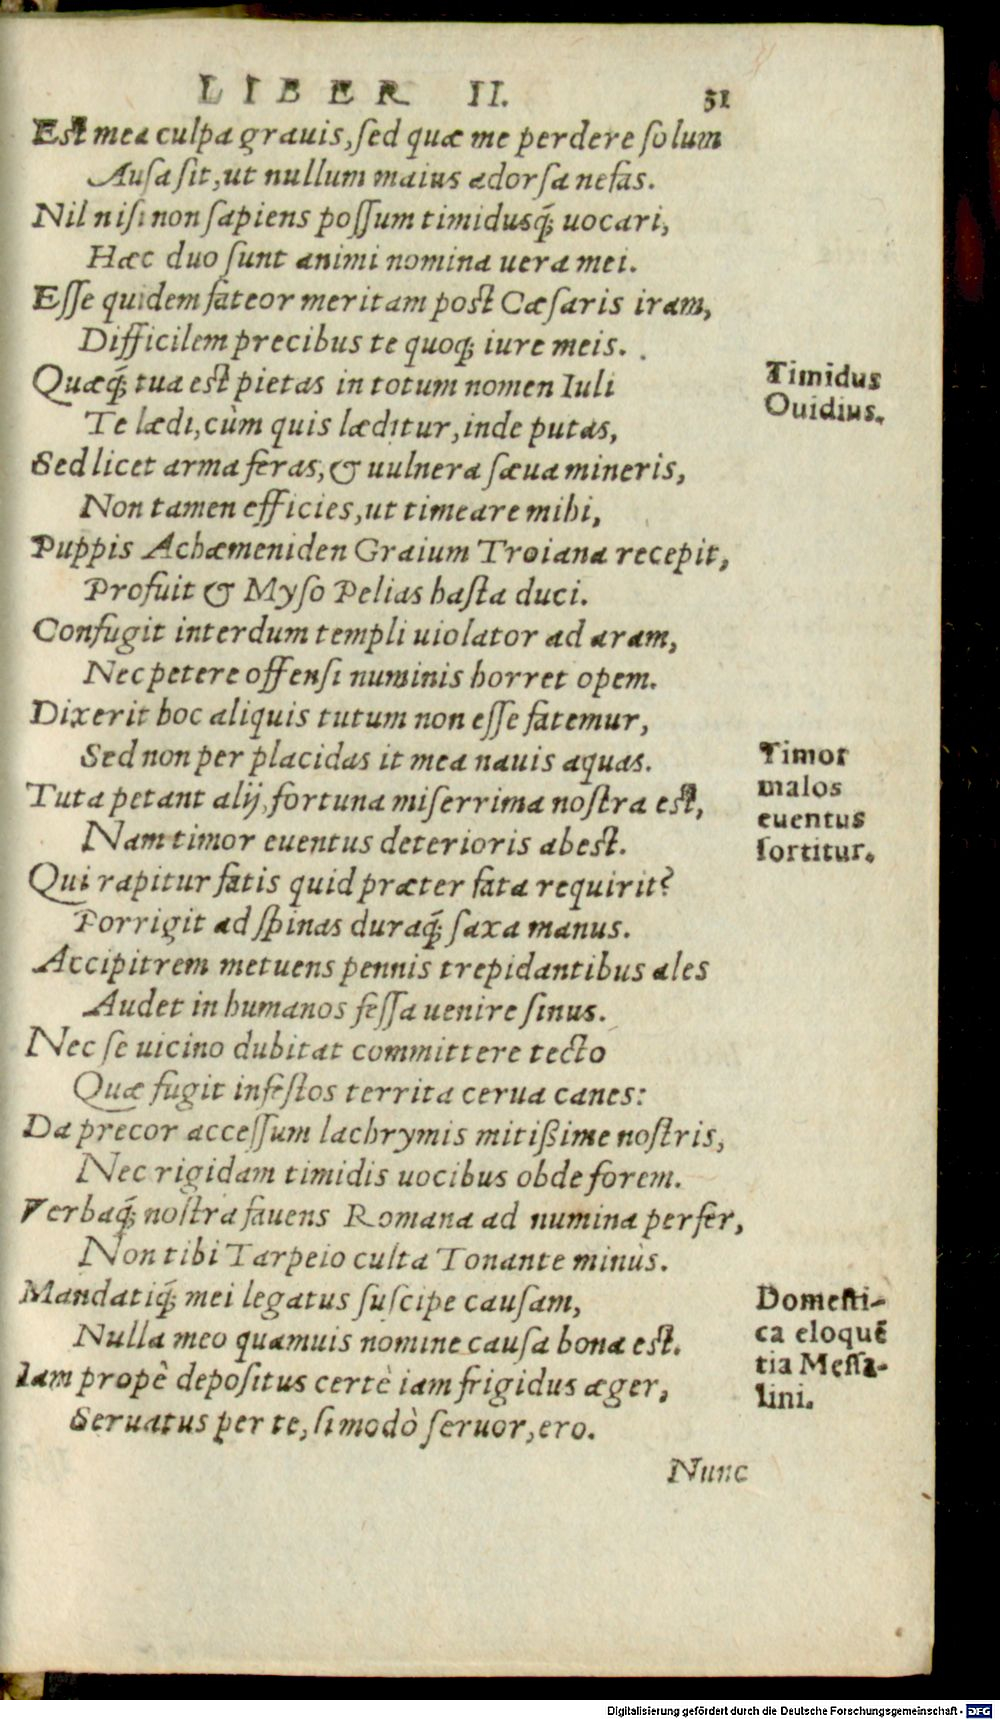 LIBER II. 51
Est mea culpa grauis, sed quæ me perdere solum
Ausa sit, ut nullum maius adorsa nefas.
Nil nisi non sapiens possum timidusq́; uocari,
Hæc duo sunt animi nomina uera mei.
Esse quidem fateor meritam post Cæsaris iram,
Difficilem precibus te quoq; iure meis.
Quæq́; tua est pietas in totum nomen Iuli
Te lædi, cùm quis læditur, inde putas,
Sed licet arma feras, & uulnera sæua mineris,
Non tamen efficies, ut timeare mihi,
Puppis Achæmeniden Graium Troiana recepit,
Profuit & Myso Pelias hasta duci.
Confugit interdum templi uiolator ad aram,
Nec petere offensi numinis horret opem.
Dixerit hoc aliquis tutum non esse fatemur,
Sed non per placidas it mea nauis aquas.
Tuta petant alij, fortuna miserrima nostra est,
Nam timor euentus deterioris abest.
Qui rapitur fatis quid præter fata requirit?
Porrigit ad spinas duraq́; saxa manus.
Accipitrem metuens pennis trepidantibus ales
Audet in humanos fessa uenire sinus.
Nec se uicino dubitat committere tecto
Quæ fugit infestos territa cerua canes:
Da precor accessum lachrymis mitißime nostris,
Nec rigidam timidis uocibus obde forem.
Verbaq́; nostra fauens Romana ad numina perfer,
Non tibi Tarpeio culta Tonante minùs.
Mandatiq́; mei legatus suscipe causam,
Nulla meo quamuis nomine causa bona est.
Iam propè depositus certè iam frigidus æger,
Seruatus per te, si modò seruor, ero.
Nunc
Timidus
Ouidius.
Timor
malos
euentus
sortitur.
Domesti-
ca eloquē
tia Messa-
lini.
Digitalisierung gefördert durch die Deutsche Forschungsgemeinschaft - DFG